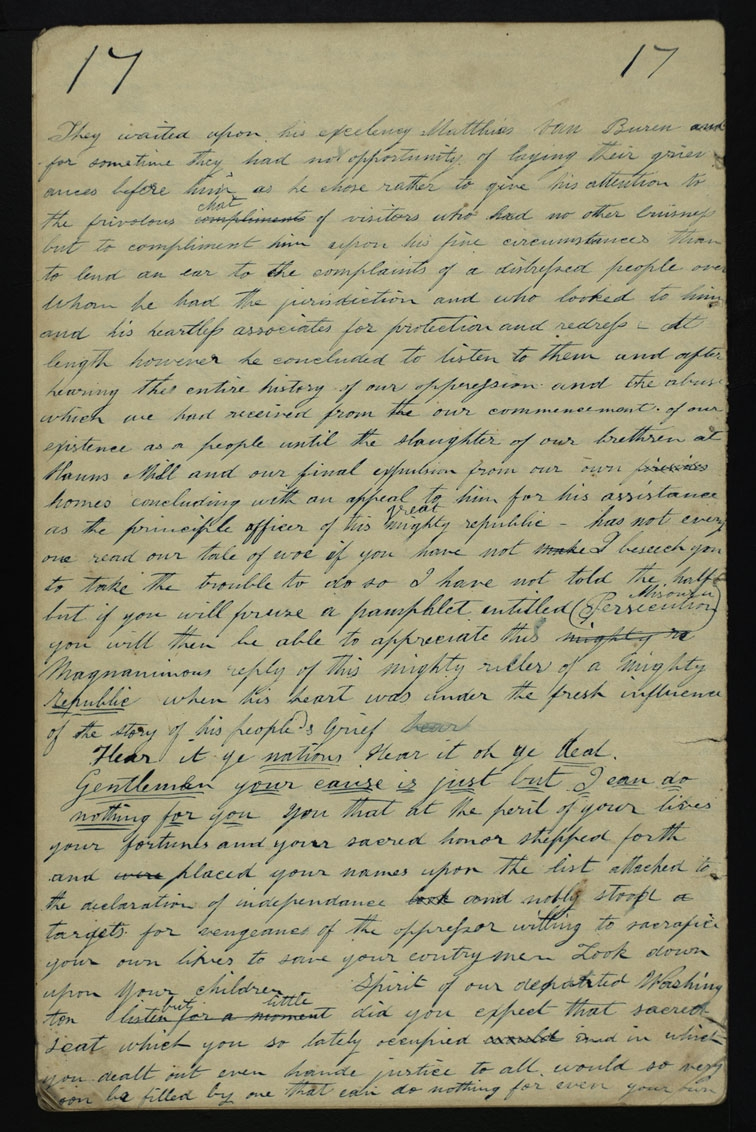 17 17
They waited upon his excelency Matthias Van Buren and
for sometime they had not opportunity of laying their griev
ances before him as he chose rather to give his attention to
chat
the frivolous compliments of visitors who had no other buisness
but to compliment him upon his fine circumstances than
to lend an ear to the complaints of a distressed people over
whom he had the jurisdiction and who looked to him
and his heartless associates for protection and redress - At
length however he concluded to listen to them and after
hearing the entire history of our oppression and the abuse
which we had received from the our commencement of our
existence as a people until the slaughter of our brethren at
Hauns Mill and our final expulsion from our own
homes concluding with an appeal to him for his assistance
great
as the principle officer of this mighty republic - has not every
one read our tale of woe if you have not make I beseech you
to take the trouble to do so I have not told the half
Missouri
but if you will peruse a pamphlet entitled (Persecution)
you will then be able to appreciate this mighty re
Magnanimous reply of this mighty ruler of a mighty
Republic when his heart was under the fresh influence
of the story of his people's Grief hear
Hear it ye nations Hear it oh ye dead.
Gentlemen your cause is just but I can do
nothing for you You that at the peril of your lives
your fortunes and your sacred honor stepped forth
and were placed your names upon the list attached to
the declaration of independance look and nobly stood a
targets for vengeance of the oppressor willing to sacrafice
your own lives to save your contrymen Look down
upon Your children Spirit of our departed Washing
but little
ton listen for a moment did you expect that sacred
seat which you so lately occupied would and in which
you dealt out even hande justice to all would so very
soon be filled by one that can do nothing for even your own